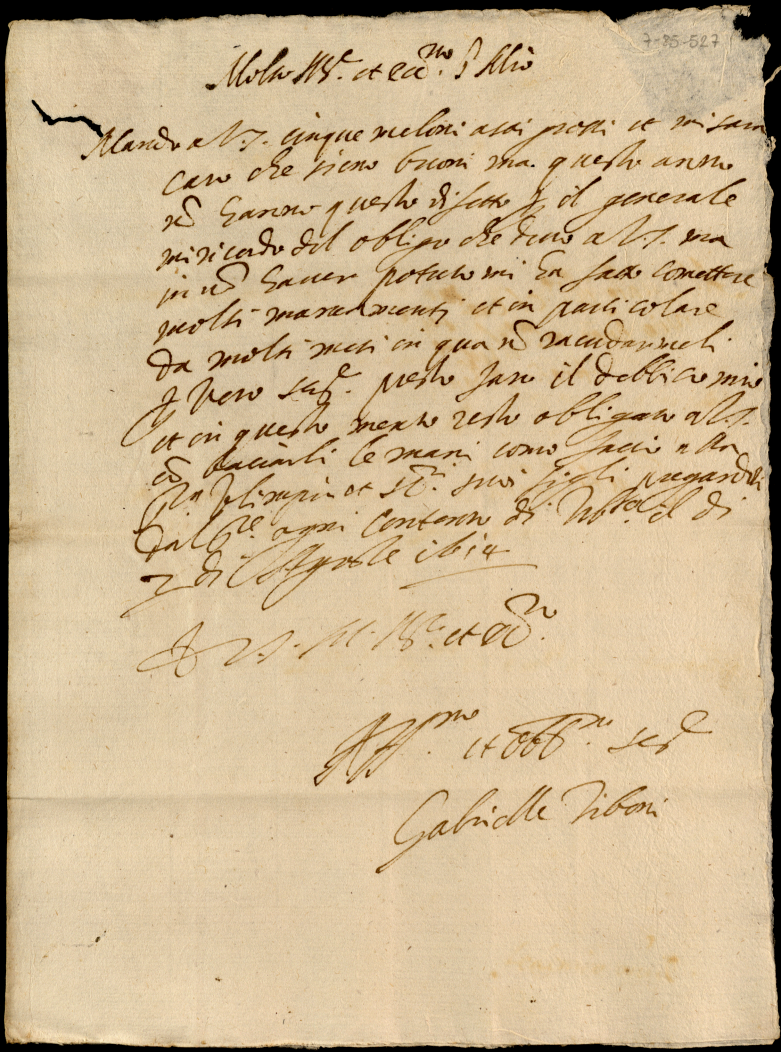 7-35-527
Molto Ill.e et ecc.mo S.
Mando a V.S. cinque meloni assai grossi et mi sara
caro che sieno buoni ma questo anno
nō hanno questo difetto il generale
mi ricordo del obligo che devo a V.S. ma
in nō haver potuto mi ha fatto comettere
molti mancamenti et in particolare
da molti mesi in qua nō
vero ser.e presto farò il debbito mio
et in questo mentre resto obligato a V.S.
cō baciarli le mani come facio alla
Olimpia et suoi figli pregandoli
dal ogni contento di il di
7 di Agosto 1614
D V.S. M. Ill.e et ecc.mo
Aff.mo et obb.mo ser.e
Gabrielle Tiboni